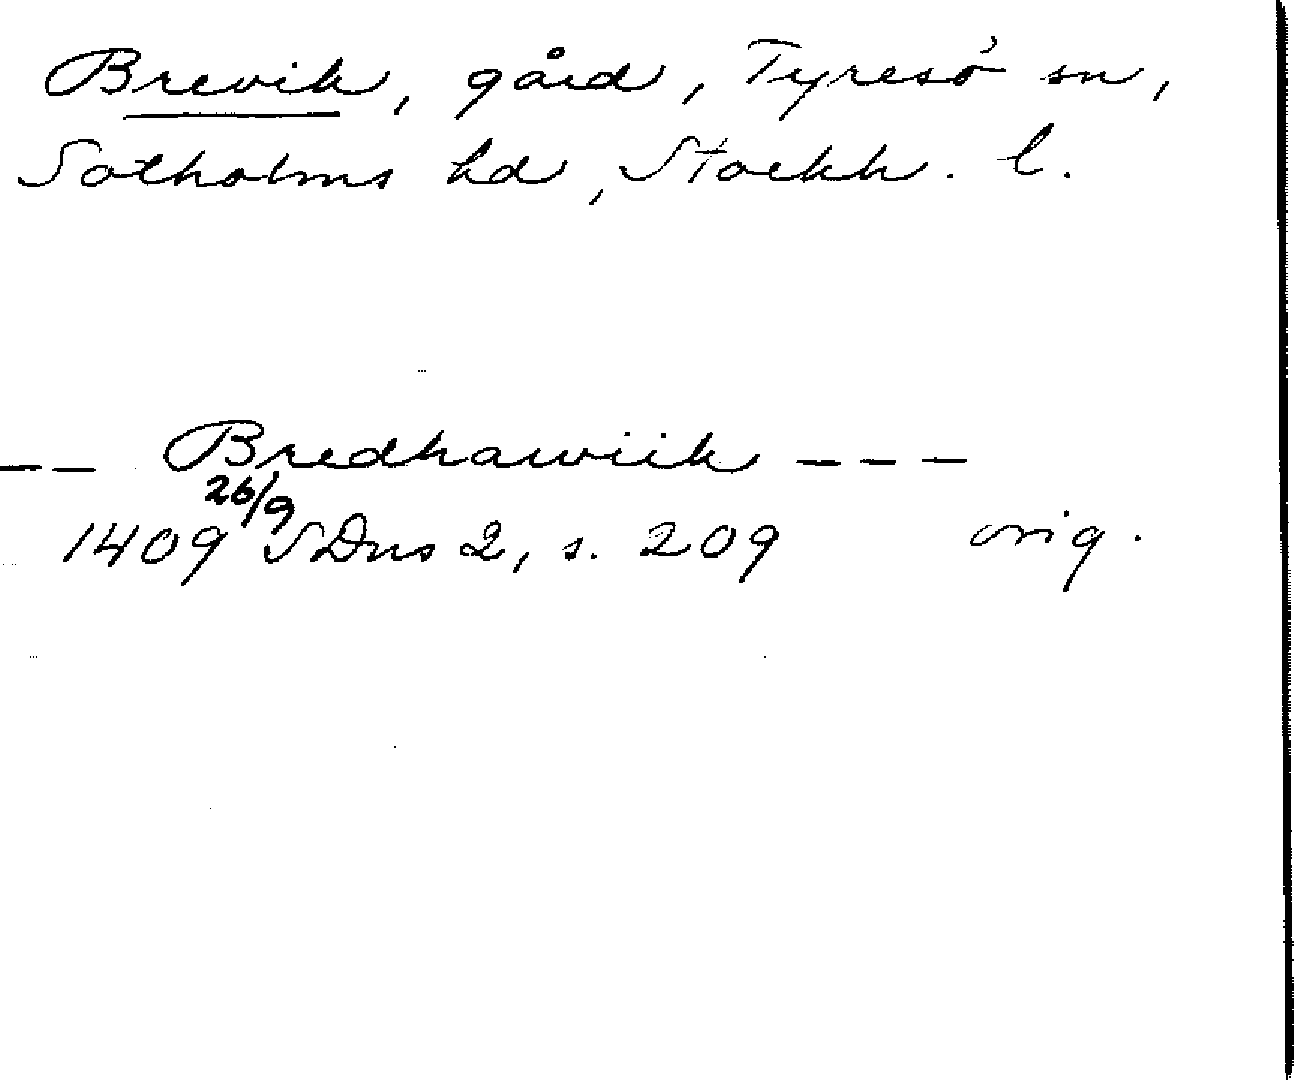 Brevik, gård, Tyresö sn,
Sotholms hd, Stockh. l.
-- Bredhawiik ---
1409 26/9 SDns 2, s. 209 orig.